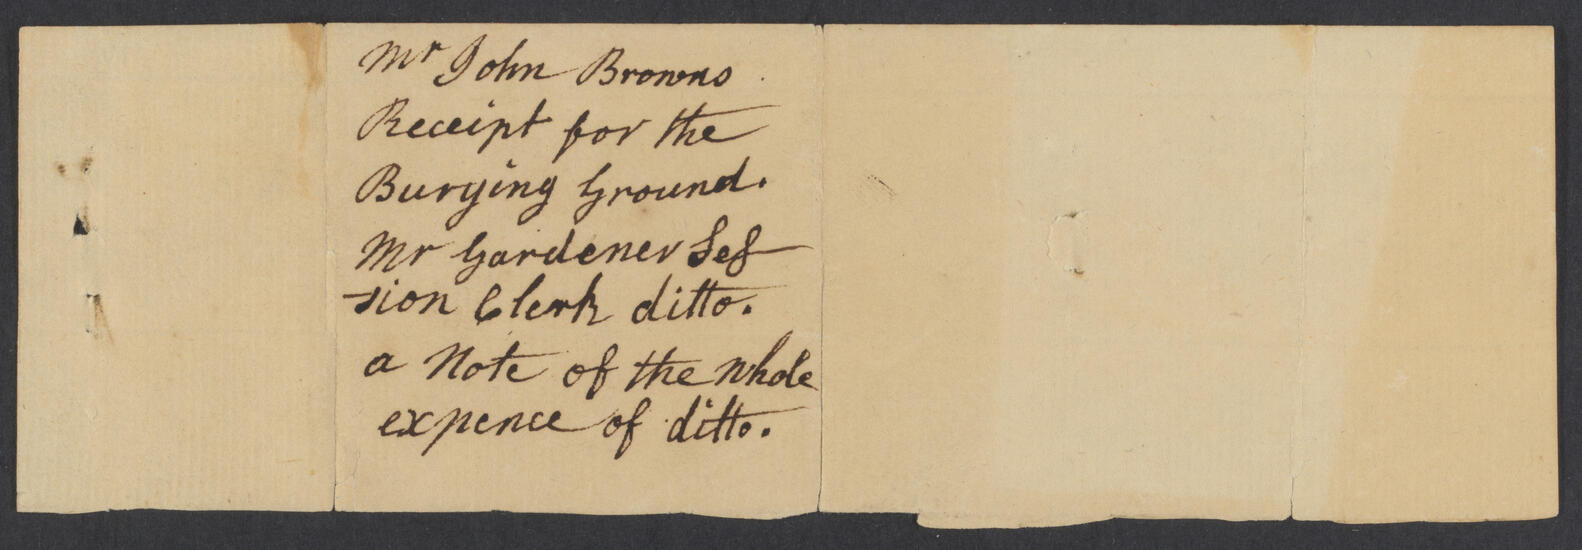 Mr John Browns
Receipt for the
Burying Ground.
Mr Gardener Ses
sion Clerk ditto.
a Note of the whole
expence of ditto.